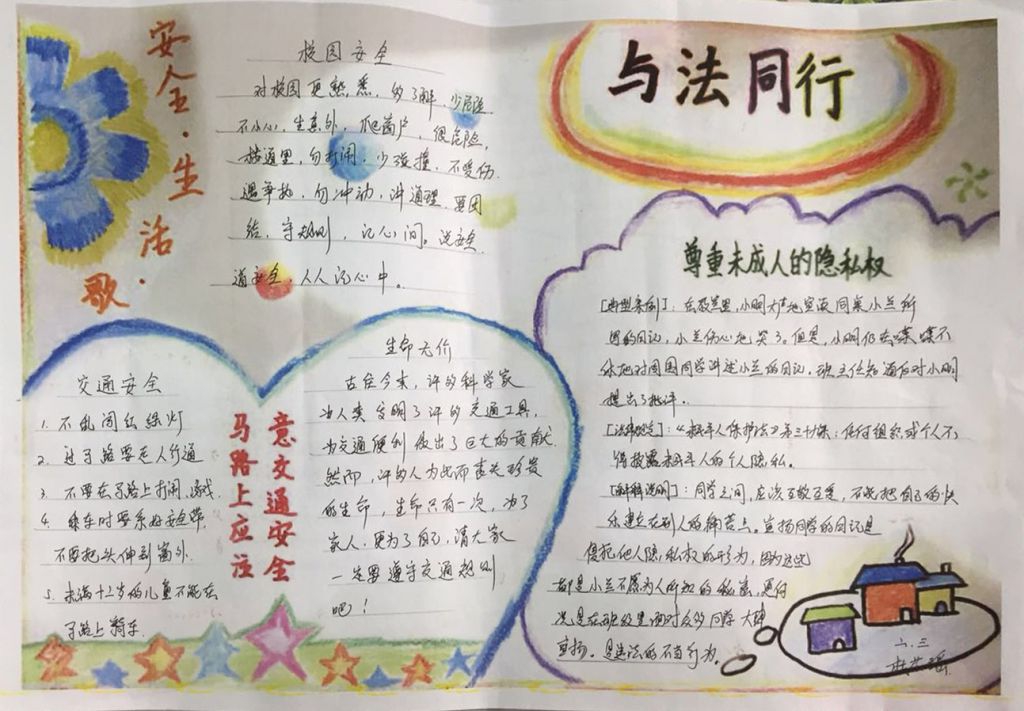 安全·生活·歌
校园安全
对校园更熟悉，多了解，少危险
不小心，生意外，爬窗户，很危险，
楼道里，勿打闹，少碰撞，不受伤
遇争执，勿冲动，讲道理，要团
结，守规则，记心间。说安全
道安全，人人记心中。
交通安全
1. 不乱闯红绿灯
2. 过马路要走人行道
3. 不要在马路上打闹、游戏
4. 乘车时要系好安全带，
不要把头伸到窗外.
5. 未满十二岁的儿童不能在
马路上骑车.
马路上应注
意交通安全
生命无价
古往今来，许多科学家
为人类发明了许多交通工具，
为交通便利做出了巨大的贡献
然而，许多人为此而丧失珍贵
的生命，生命只有一次，为了
家人，更为了自己，请大家
一定要遵守交通规则
吧！
与法同行
尊重未成人的隐私权
[典型案例]：在教室里，小明大声地宣读同桌小兰所
写的日记，小兰伤心地哭了。但是，小明仍在喋喋不
休地对周围同学讲述小兰的日记。班主任知道后对小明
提出了批评.
人保护法》第三十九条：任何组织或个人不
得披露未成年人的个人隐私。
同学之间，应该互敬互爱，不能把自己的快
乐建立在别人的痛苦上。宣扬同学的日记是
侵犯他人隐私权的行为，因为这些
都是小兰不愿为人所知的秘密，更何
况是在班级里面对众多同学大肆
宣扬。是违法的不当行为。
六.三